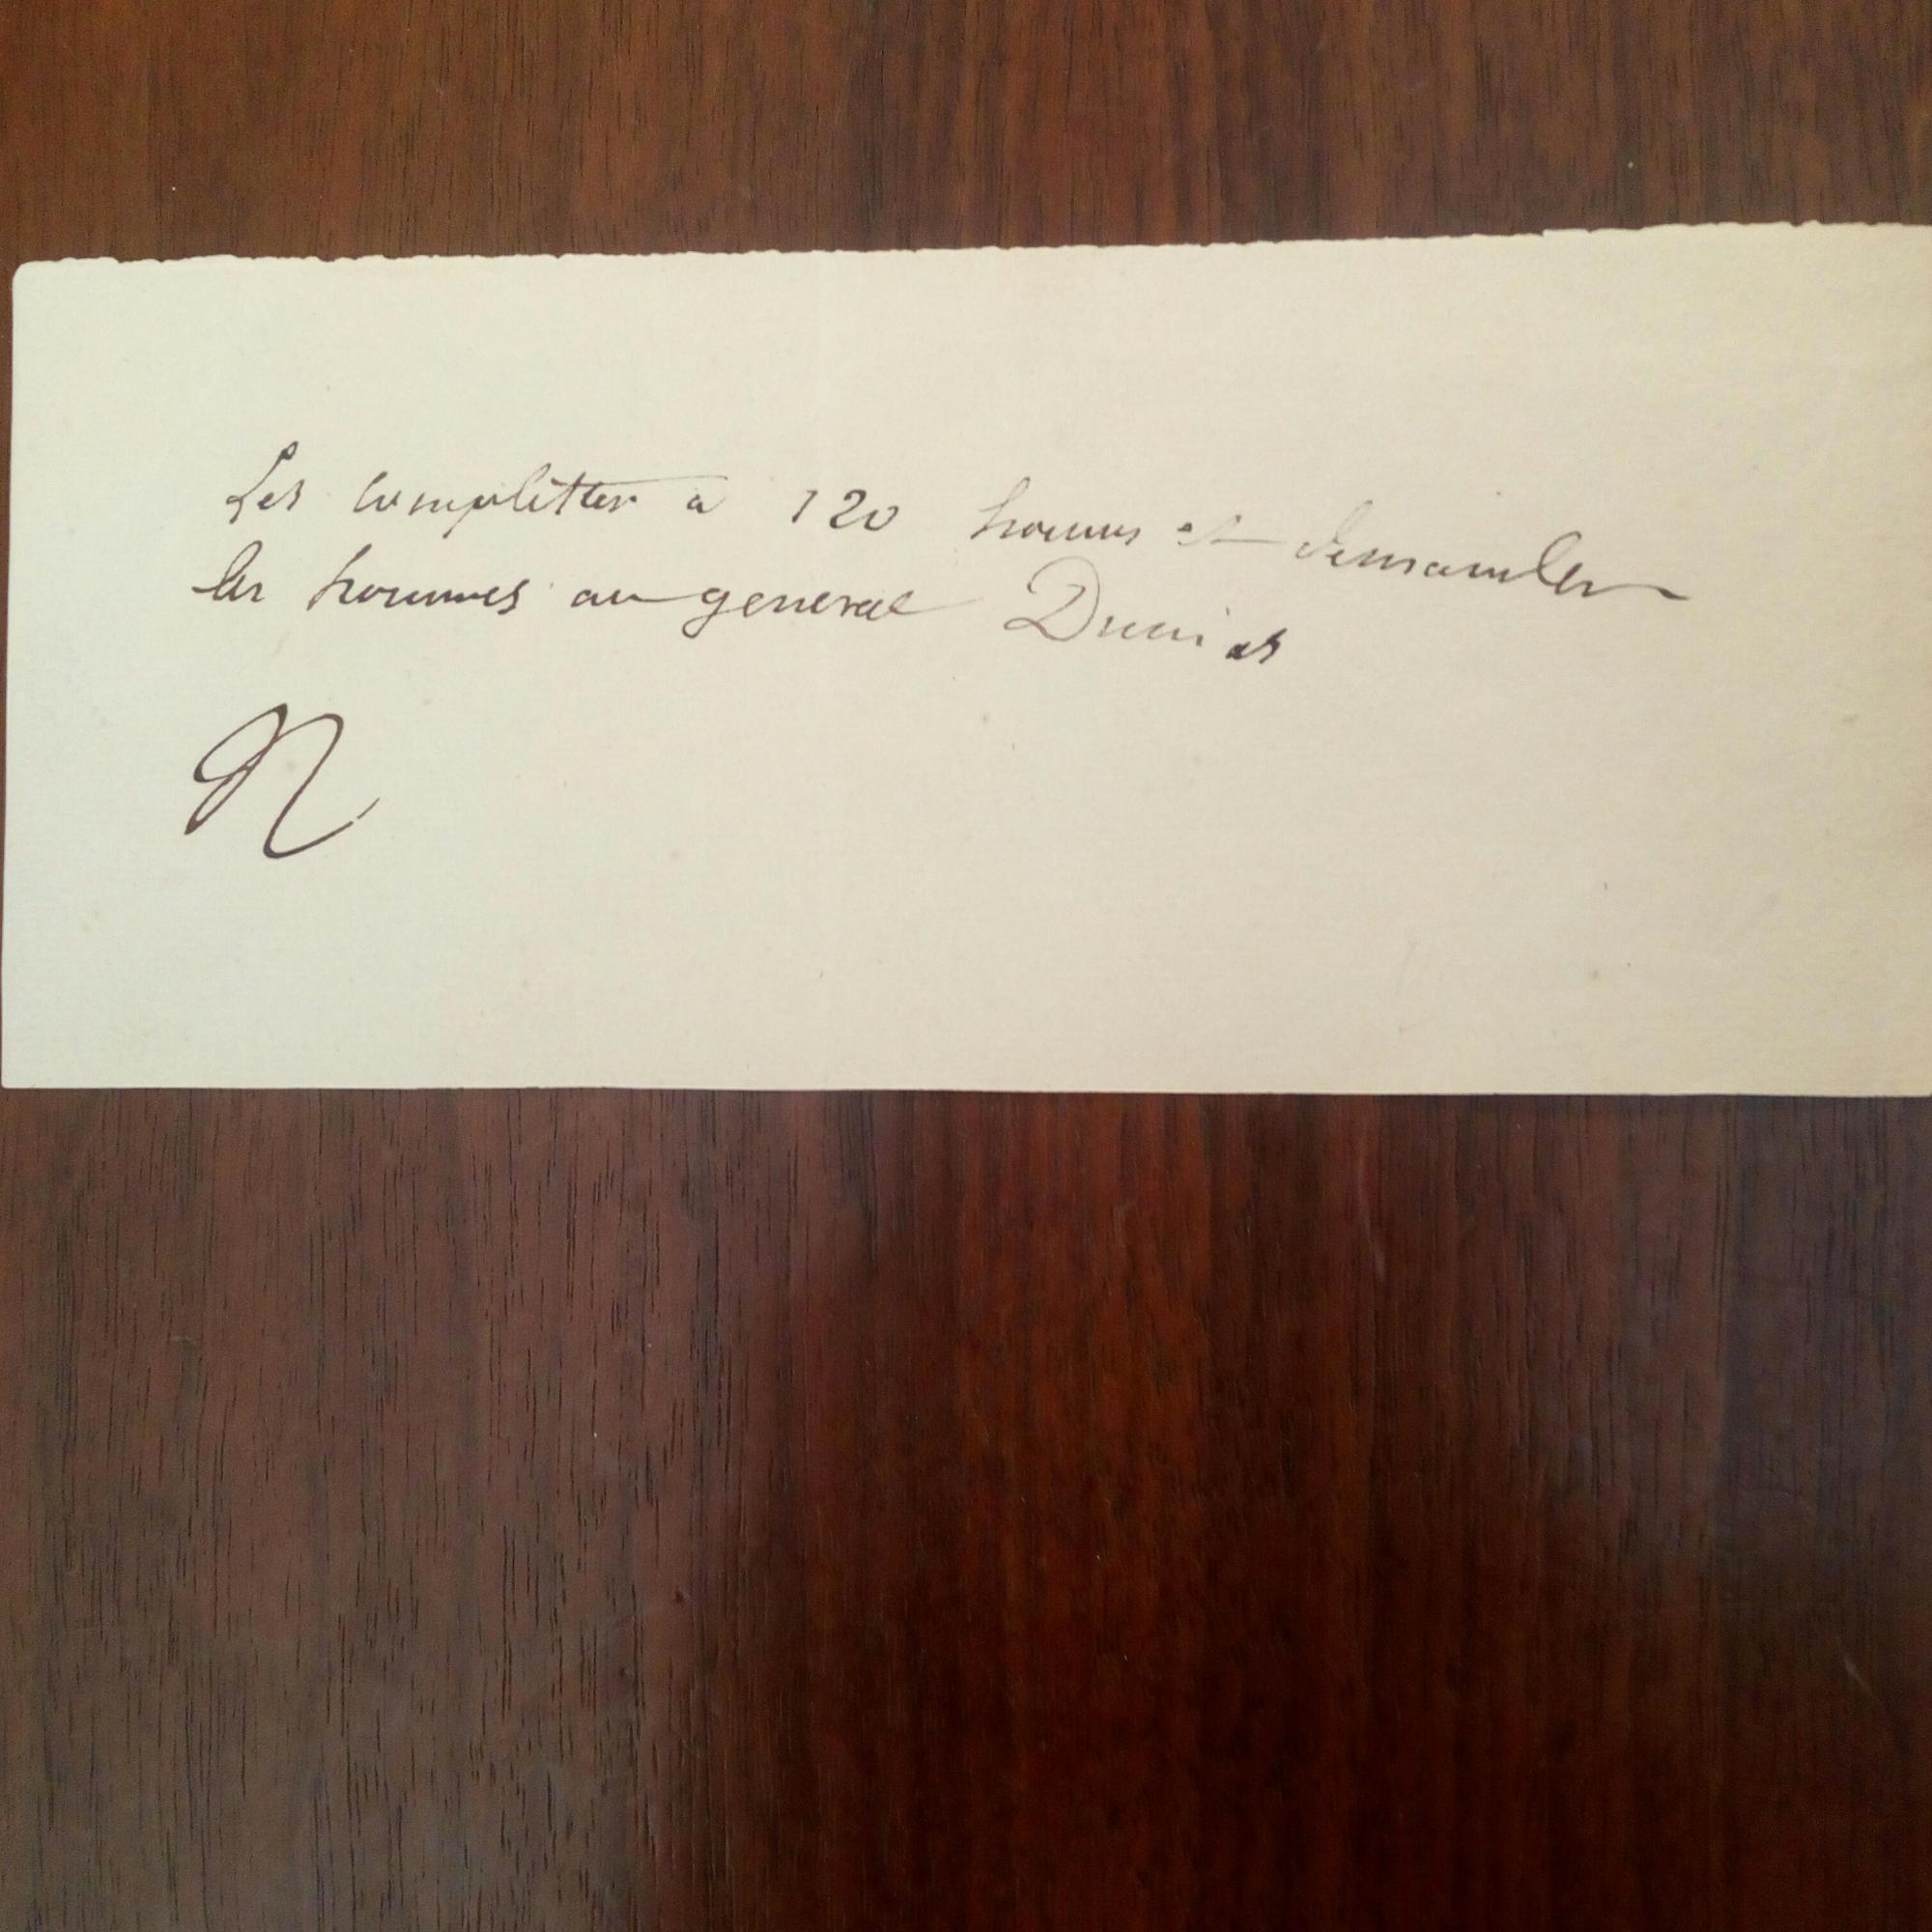 Les complètter a 120 hommes et demander
les hommes au general Dumas
N